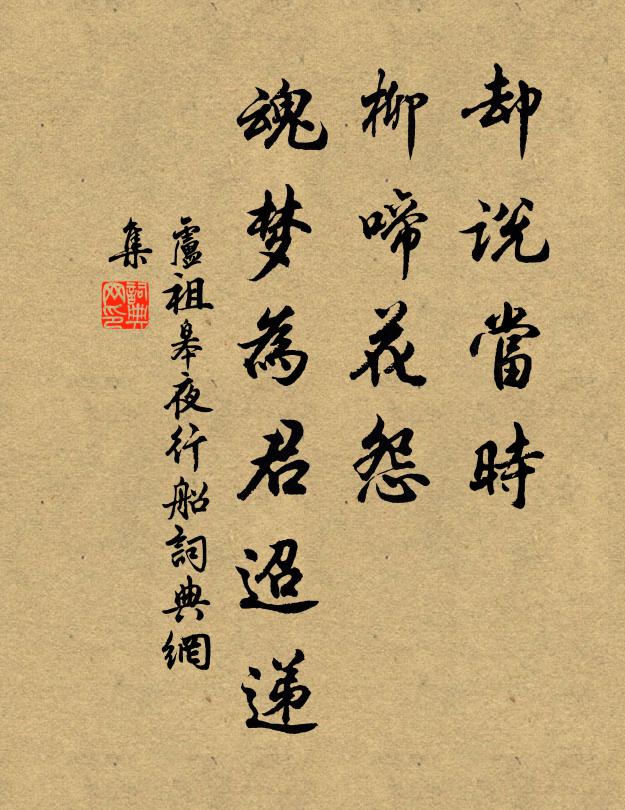 却说當時
柳啼花怨
魂梦為君迢递
盧祖皋夜行船詞典網
集
詞典
网印